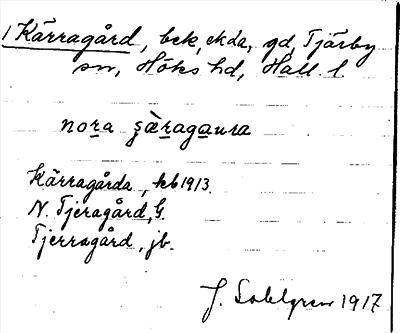 1 Kärragård, bck, ekda, gd, Tjärby
sn, Höks hd, Hall. l
nora şàragaụra
Kärragårda, kb 1913.
N. Tjeragård, G.
Tjerragård, jb.
J. Sahlgren 1917